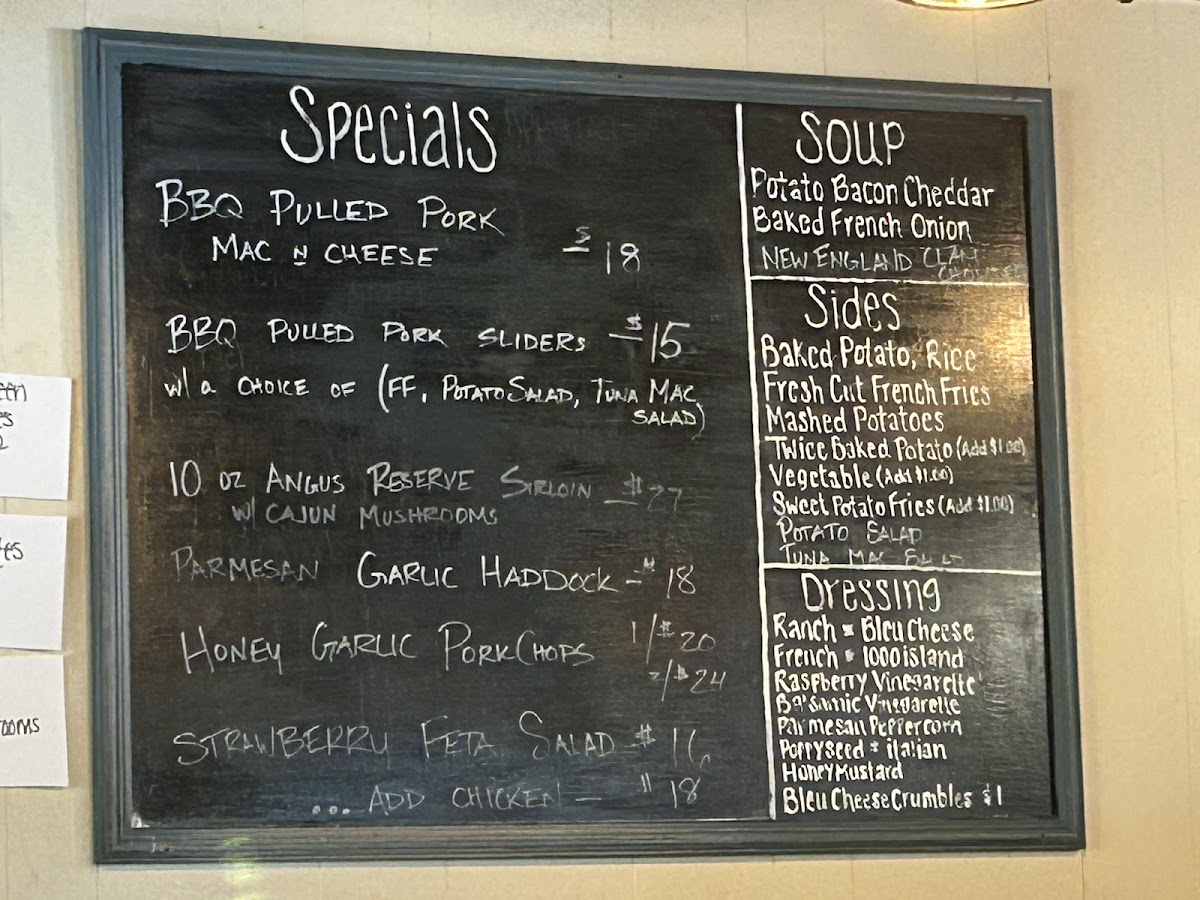 Specials
BBQ PULLED PORK
MAC N CHEESE - $18
BBQ PULLED PORK SLIDERS - $15
w/ a CHOICE OF (FF, POTATO SALAD, TUNA MAC
SALAD)
10 OZ ANGUS RESERVE SIRLOIN - $27
w/ CAJUN MUSHROOMS
PARMESAN GARLIC HADDOCK - $18
HONEY GARLIC PORK CHOPS 1/$20
2/$24
STRAWBERRY FETA SALAD - $16
... ADD CHICKEN - $18
Soup
Potato Bacon Cheddar
Baked French Onion
NEW ENGLAND CLAM
CHOWDER
Sides
Baked Potato, Rice
Fresh Cut French Fries
Mashed Potatoes
Twice Baked Potato (Add $1.00)
Vegetable (Add $1.00)
Sweet Potato Fries (Add $1.00)
POTATO SALAD
TUNA MAC SALAD
Dressing
Ranch * Bleu Cheese
French * 1000 island
Raspberry Vinegarette
Balsamic Vinegarette
Parmesan Peppercorn
Poppyseed * italian
Honey Mustard
Bleu Cheese Crumbles $1